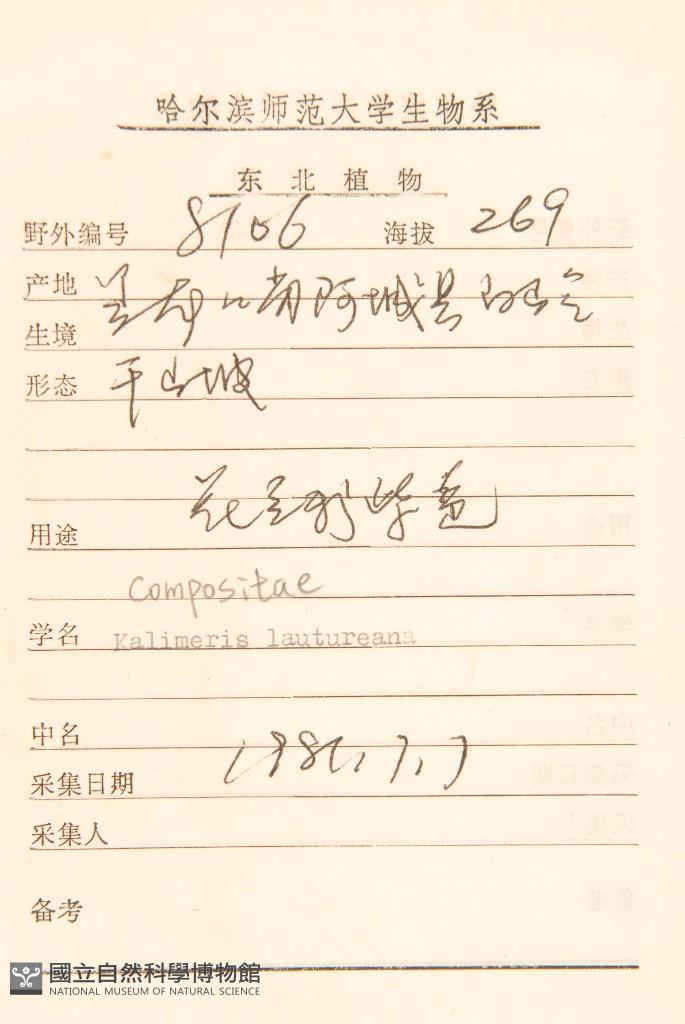 哈尔滨师范大学生物系
东北植物
野外编号 8106 海拔 269
产地 黑龙江省阿城县
生境 干山坡
形态
花
用途
Compositae
学名 Kalimeris lautureana
中名
采集日期 1981.7.7
采集人
备考
國立自然科學博物館
NATIONAL MUSEUM OF NATURAL SCIENCE